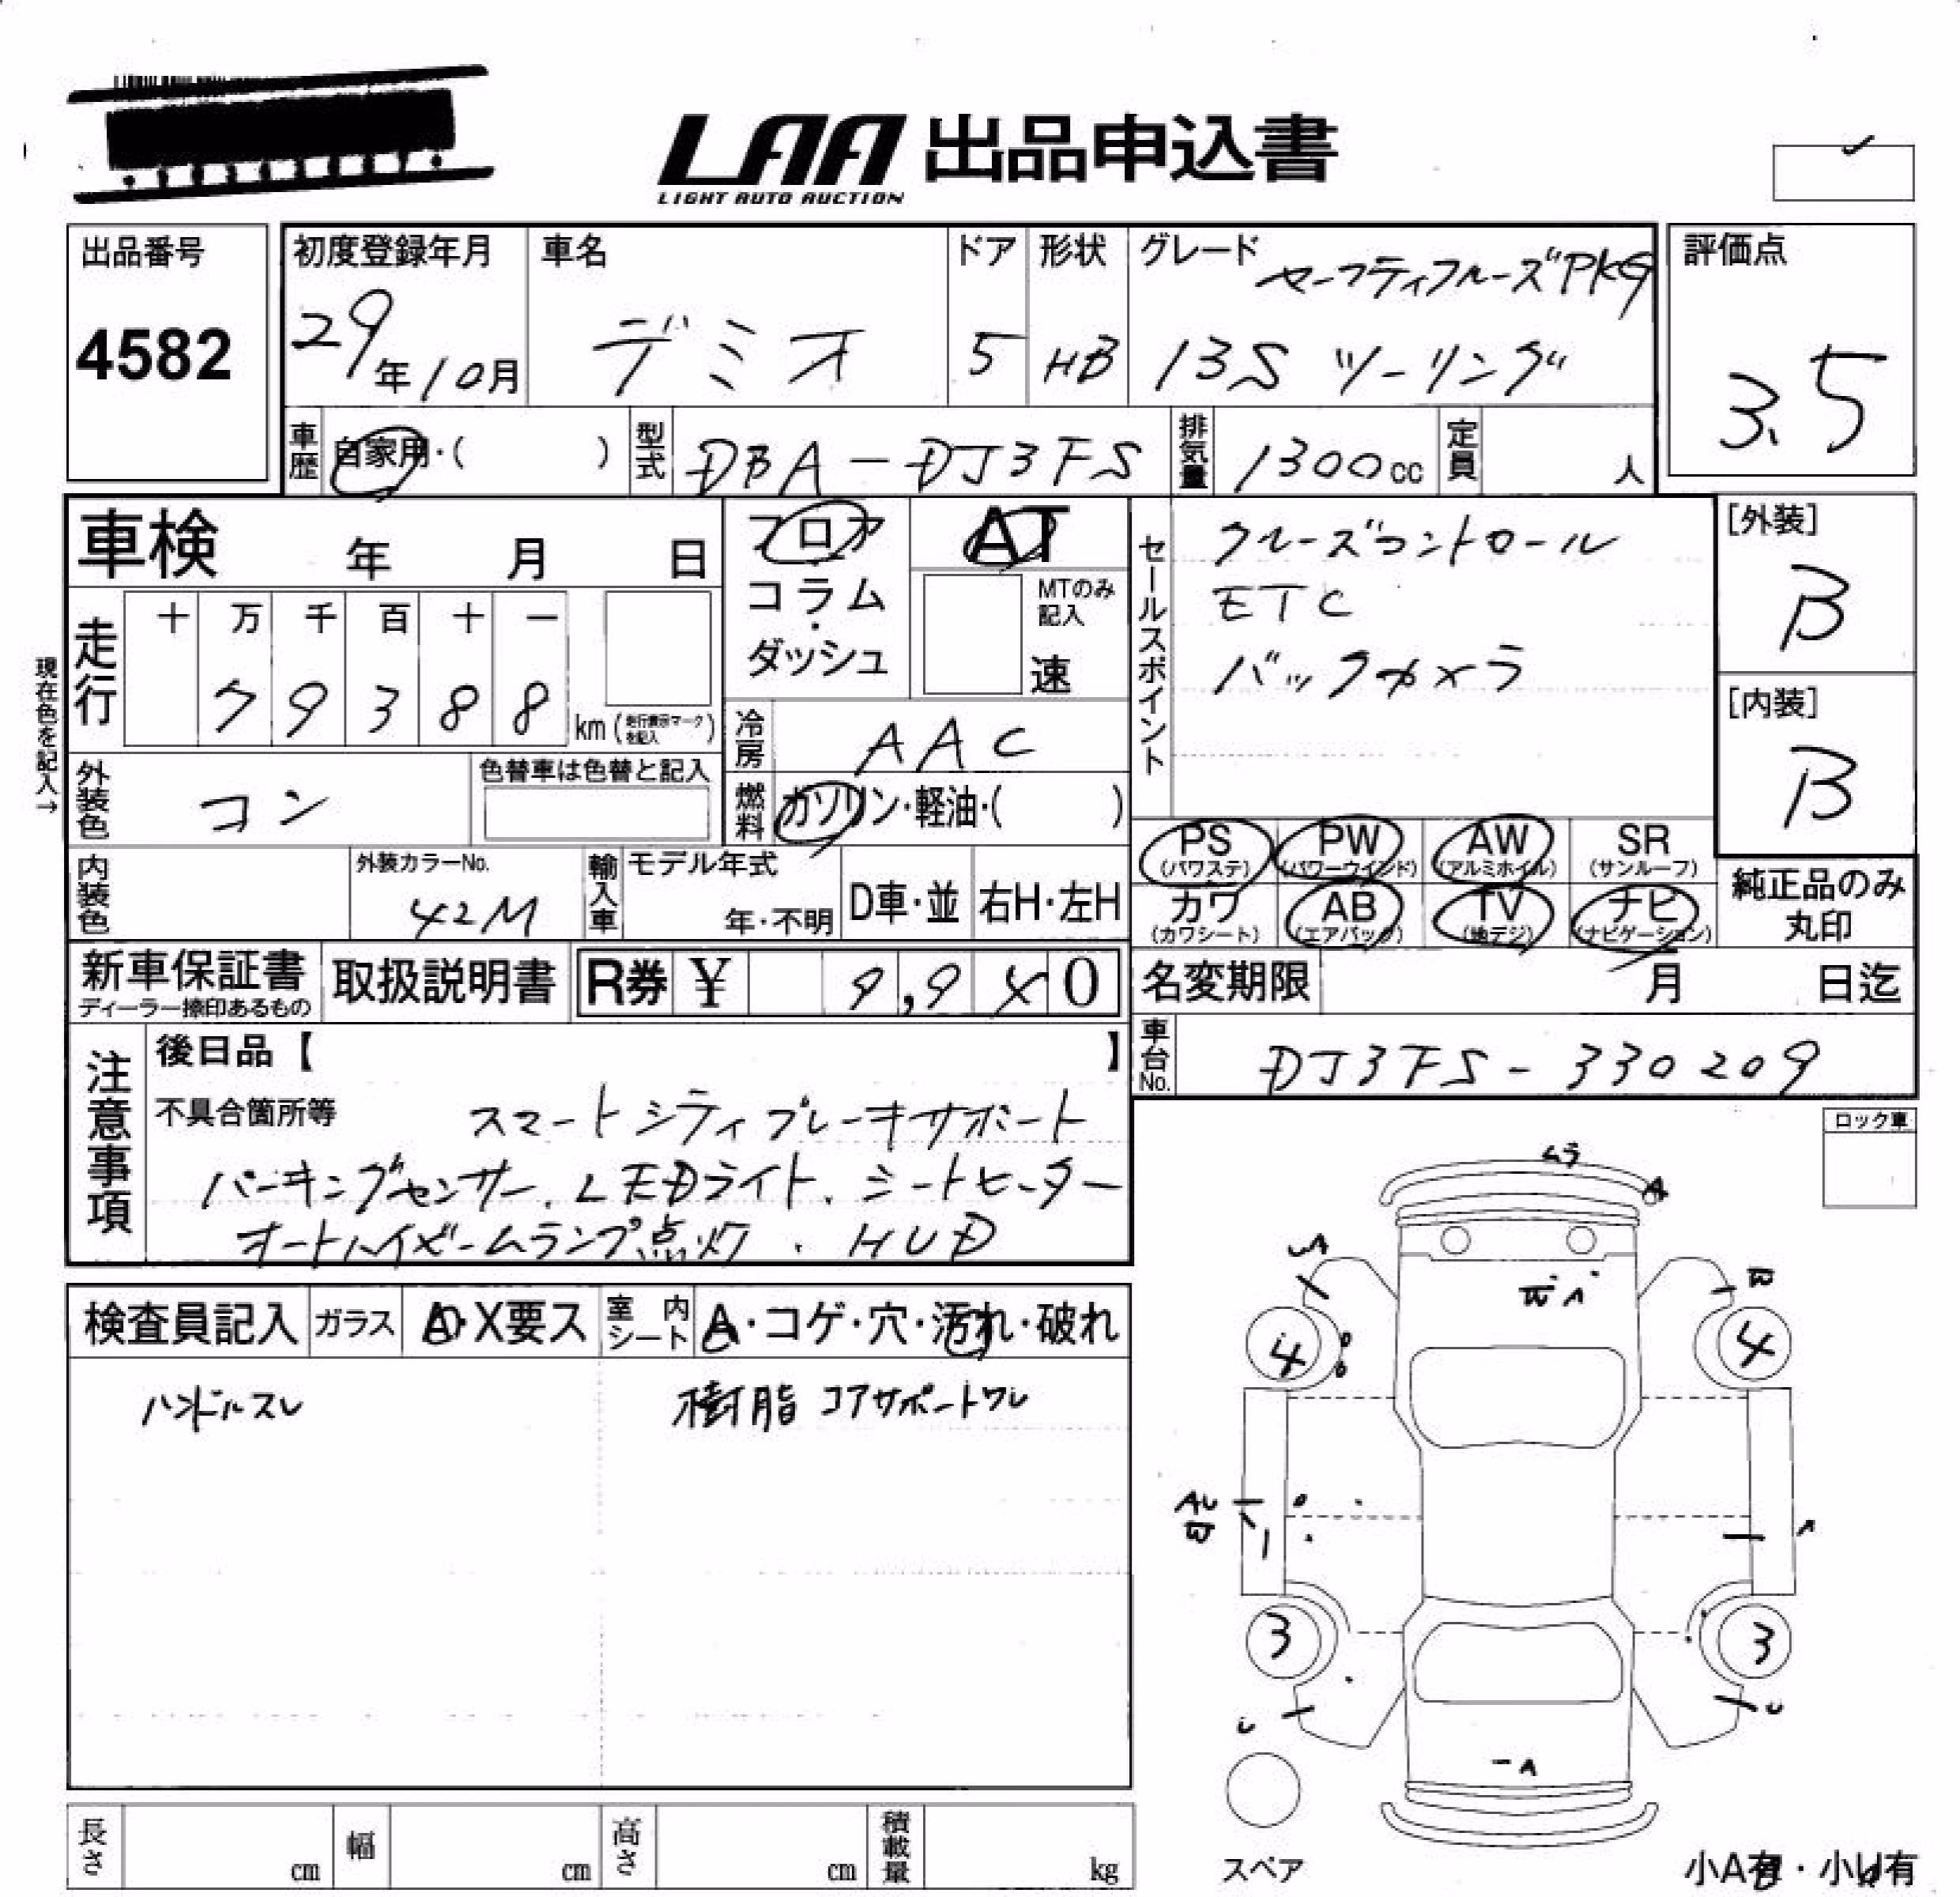 LAA 出品申込書
LIGHT AUTO AUCTION
出品番号
4582
初度登録年月
29年10月
車名
デミオ
ドア
5
形状
HB
グレード
セーフティクルーズPKG
13S ツーリング
評価点
3.5
車歴
自家用・( )
型式
DBA-DJ3FS
排気量
1300cc
定員
人
車検 年 月 日
フロア
コラム
・
ダッシュ
AT
MTのみ
記入
速
セールスポイント
クルーズコントロール
ETC
バックカメラ
[外装]
B
[内装]
B
現在色を記入→
走行
十 万 千 百 十 一
7 9 3 8 8
km(走行表示マークを記入)
冷房
AAC
燃料
ガソリン・軽油・( )
外装色
コン
色替車は色替と記入
内装色
外装カラーNo.
42M
輸入車
モデル年式
年・不明
D車・並
右H・左H
PS
(パワステ)
PW
(パワーウインド)
AW
(アルミホイル)
SR
(サンルーフ)
カワ
(カワシート)
AB
(エアバック)
TV
(地デジ)
ナビ
(ナビゲーション)
純正品のみ
丸印
新車保証書
ディーラー捺印あるもの
取扱説明書
R券 ¥ 9,940
名変期限 月 日迄
車台No.
DJ3FS-330209
注意事項
後日品【 】
不具合箇所等
スマートシティブレーキサポート
パーキングセンサー、LEDライト、シートヒーター
オートハイビームランプ点灯、HUD
ロック車
検査員記入
ガラス
A・X要ス
室内シート
A・コゲ・穴・汚れ・破れ
ハンドルスレ
樹脂 コアサポートワレ
ムラ
A
UA
W
W A
4
4
AU
W
A
3
3
U
U
A
スペア
小A有・小U有
長さ
cm
幅
cm
高さ
cm
積載量
kg